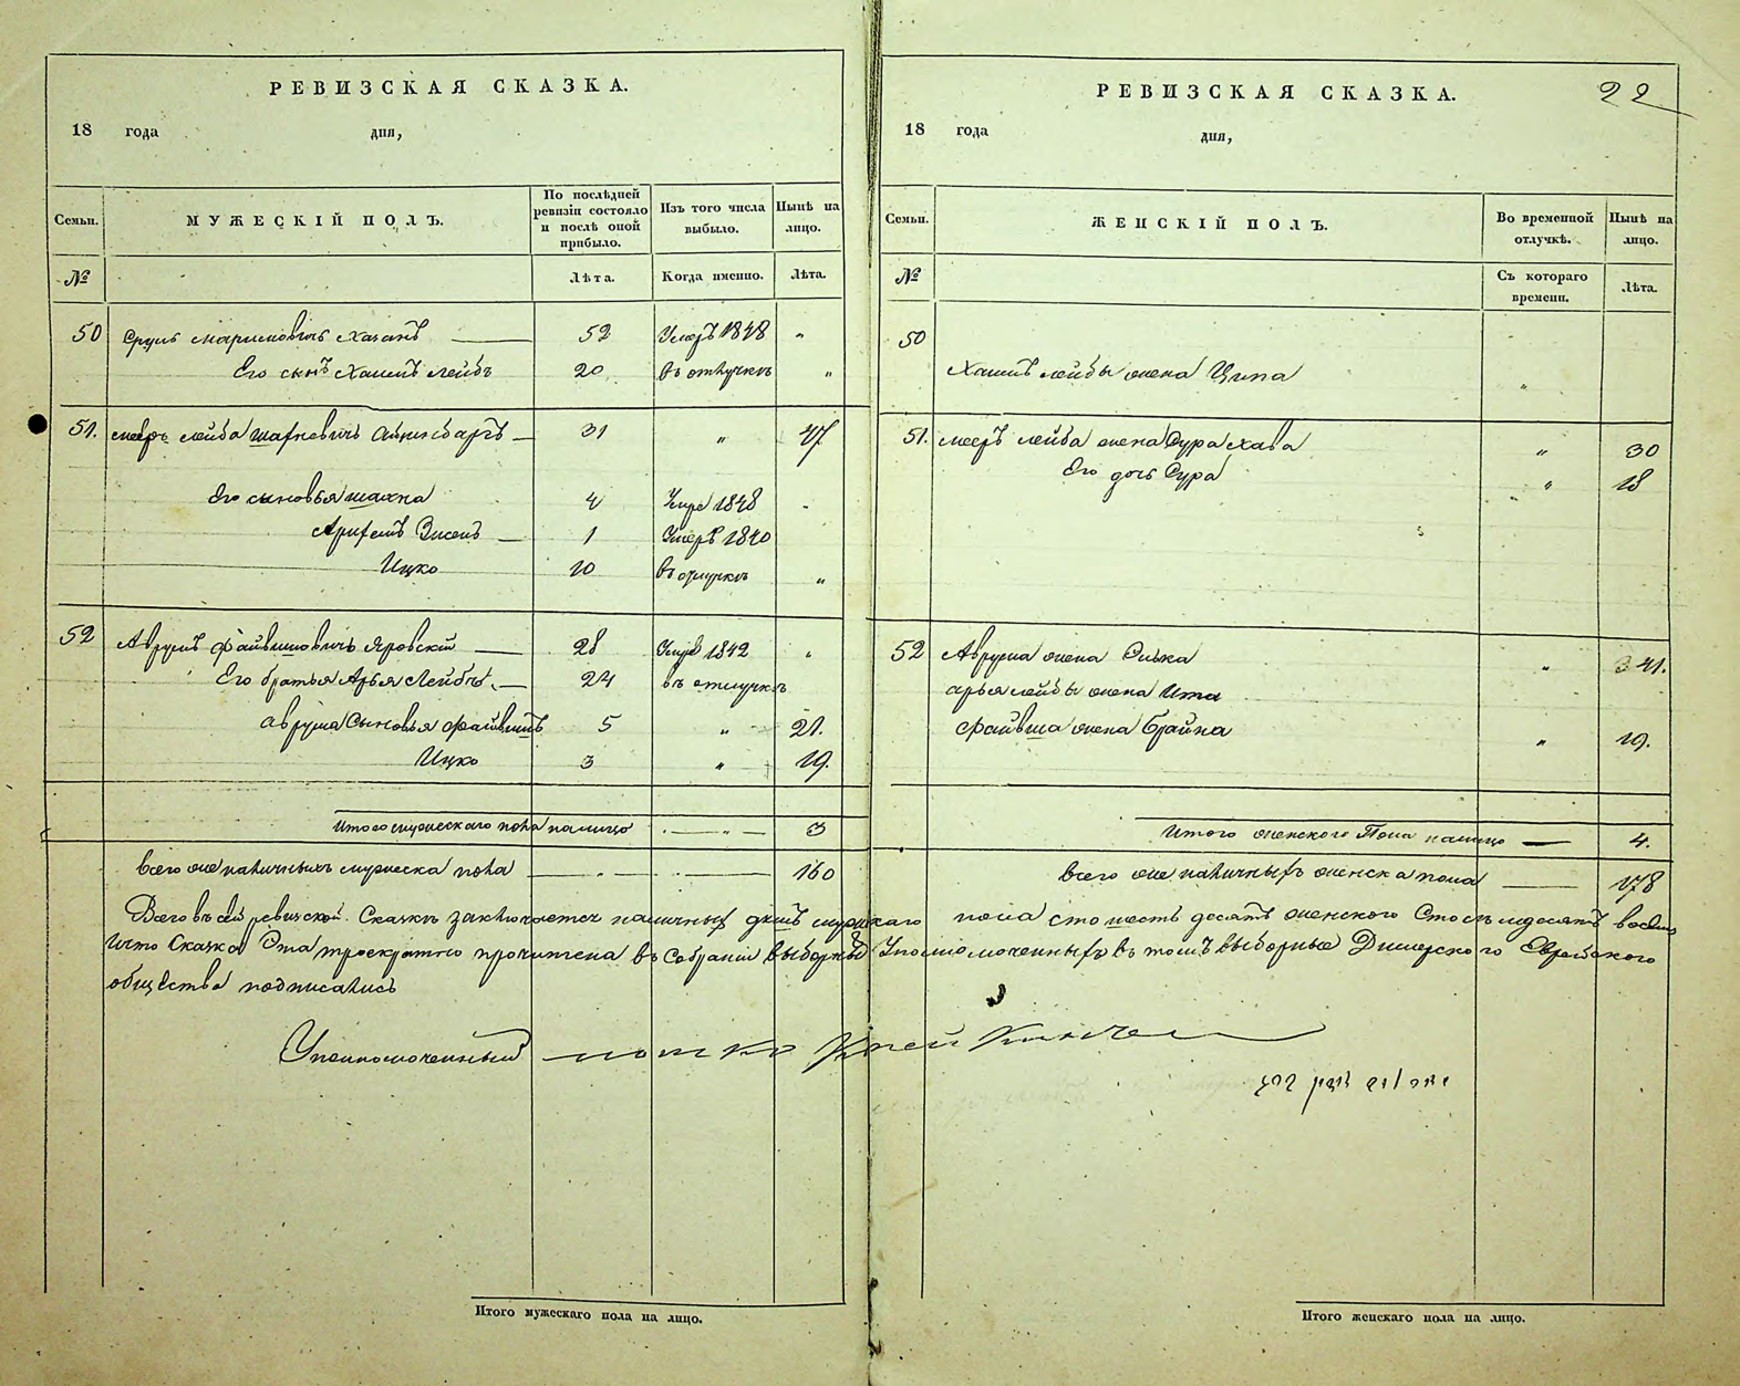 РЕВИЗСКАЯ СКАЗКА.
18 года дня,
Семьи. МУЖЕСКІЙ ПОЛЪ. По послѣдней ревизіи состояло и послѣ оной прибыло. Изъ того числа выбыло. Нынѣ на лицо.
№ Лѣта. Когда именно. Лѣта.
50 Сруль Хазанъ 52 Умеръ 1848 "
Его сынъ Хаимъ Лейбъ 20 въ отлучкѣ "
51. Мееръ Лейба 31 " 47
Его сыновья Шахна 4 Умре 1848
1 Умеръ 1840
Ицко 10 въ отлучкѣ "
52 Аврумъ Файвишовичъ Яровскій 28 Умре 1842 "
Его братья Арья Лейбъ. 24 въ отлучкѣ
Аврума Сыновья Файвишъ 5 " 21.
Ицко 3 " 19.
Итого мужескаго пола налицо " 3
Всего же наличныхъ мужеска пола 160
Итого мужескаго пола на лицо.
РЕВИЗСКАЯ СКАЗКА. 22
18 года дня,
Семьи. ЖЕНСКІЙ ПОЛЪ. Во временной отлучкѣ. Нынѣ на лицо.
№ Съ котораго времени. Лѣта.
50
Хаимъ Лейбы жена Ципа "
51. Мееръ Лейба жена Сура Хава " 30
Его дочь Сура " 18
52 Аврума жена " 41.
Арья Лейбы жена Ита
Файвиша жена Брайна " 19.
Итого женского Пола налицо 4.
Всего же наличныхъ женска пола 178
Всего въ сей ревизской Сказкѣ заключается наличныхъ душъ мужскаго пола сто шесть десятъ женского Сто семдесятъ восемь
Что Сказка Эта троекратно прочитена въ Собраніи выборныхъ Уполномоченныхъ въ томъ выборные Еврейского
общества подписались
Уполномоченный
Итого женскаго пола на лицо.